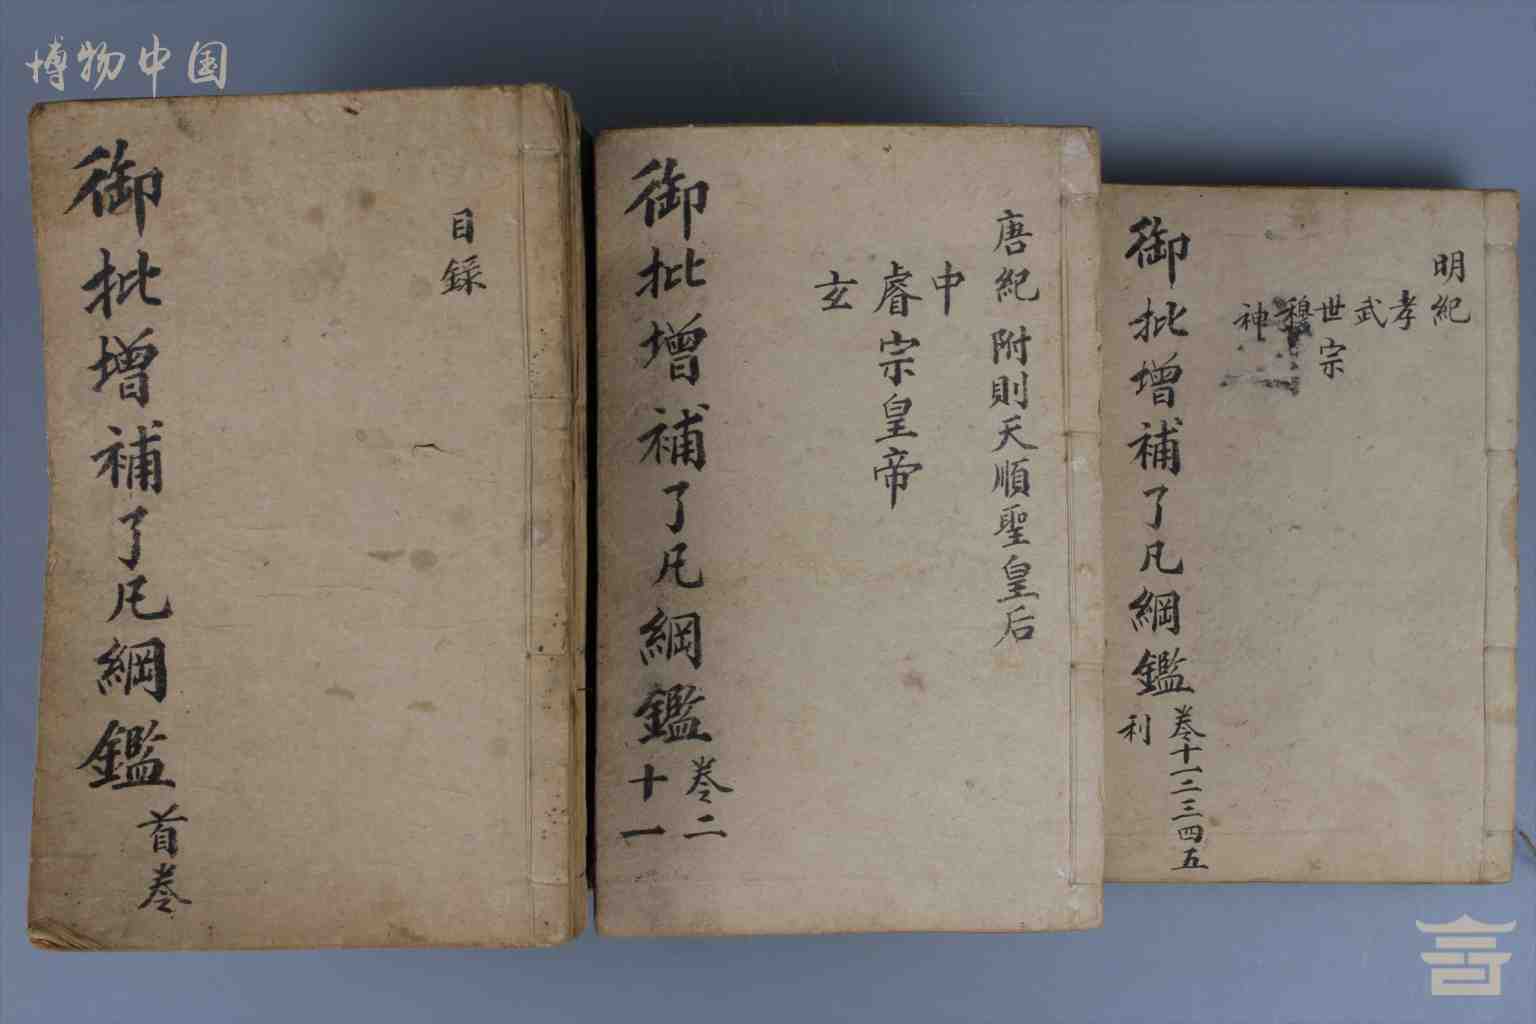 博物中国
御批增補了凡綱鑑 首卷
目錄
御批增補了凡綱鑑 卷二十一
唐紀 附則天順聖皇后
中
睿宗皇帝
玄
御批增補了凡綱鑑 卷十一二三四五
利
明紀
孝
武
世宗
穆
神